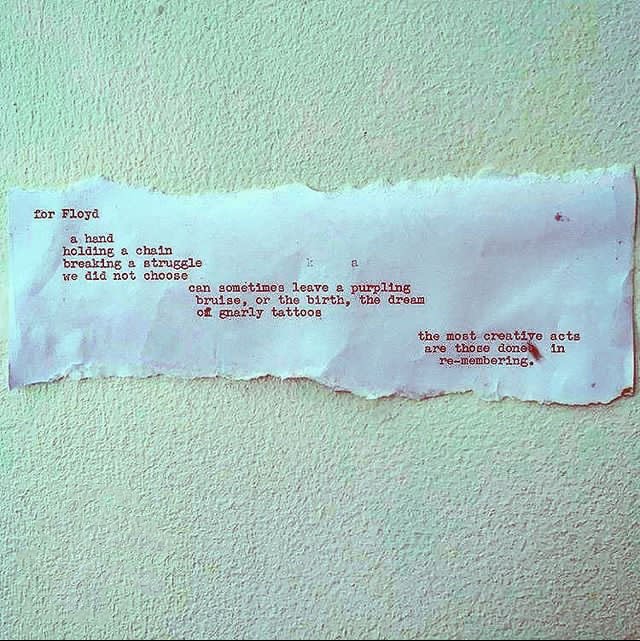 for Floyd
a hand
holding a chain
breaking a struggle
k a
we did not choose
can sometimes leave a purpling
bruise, or the birth, the dream
of gnarly tattoos
the most creative acts
are those done in
re-membering.